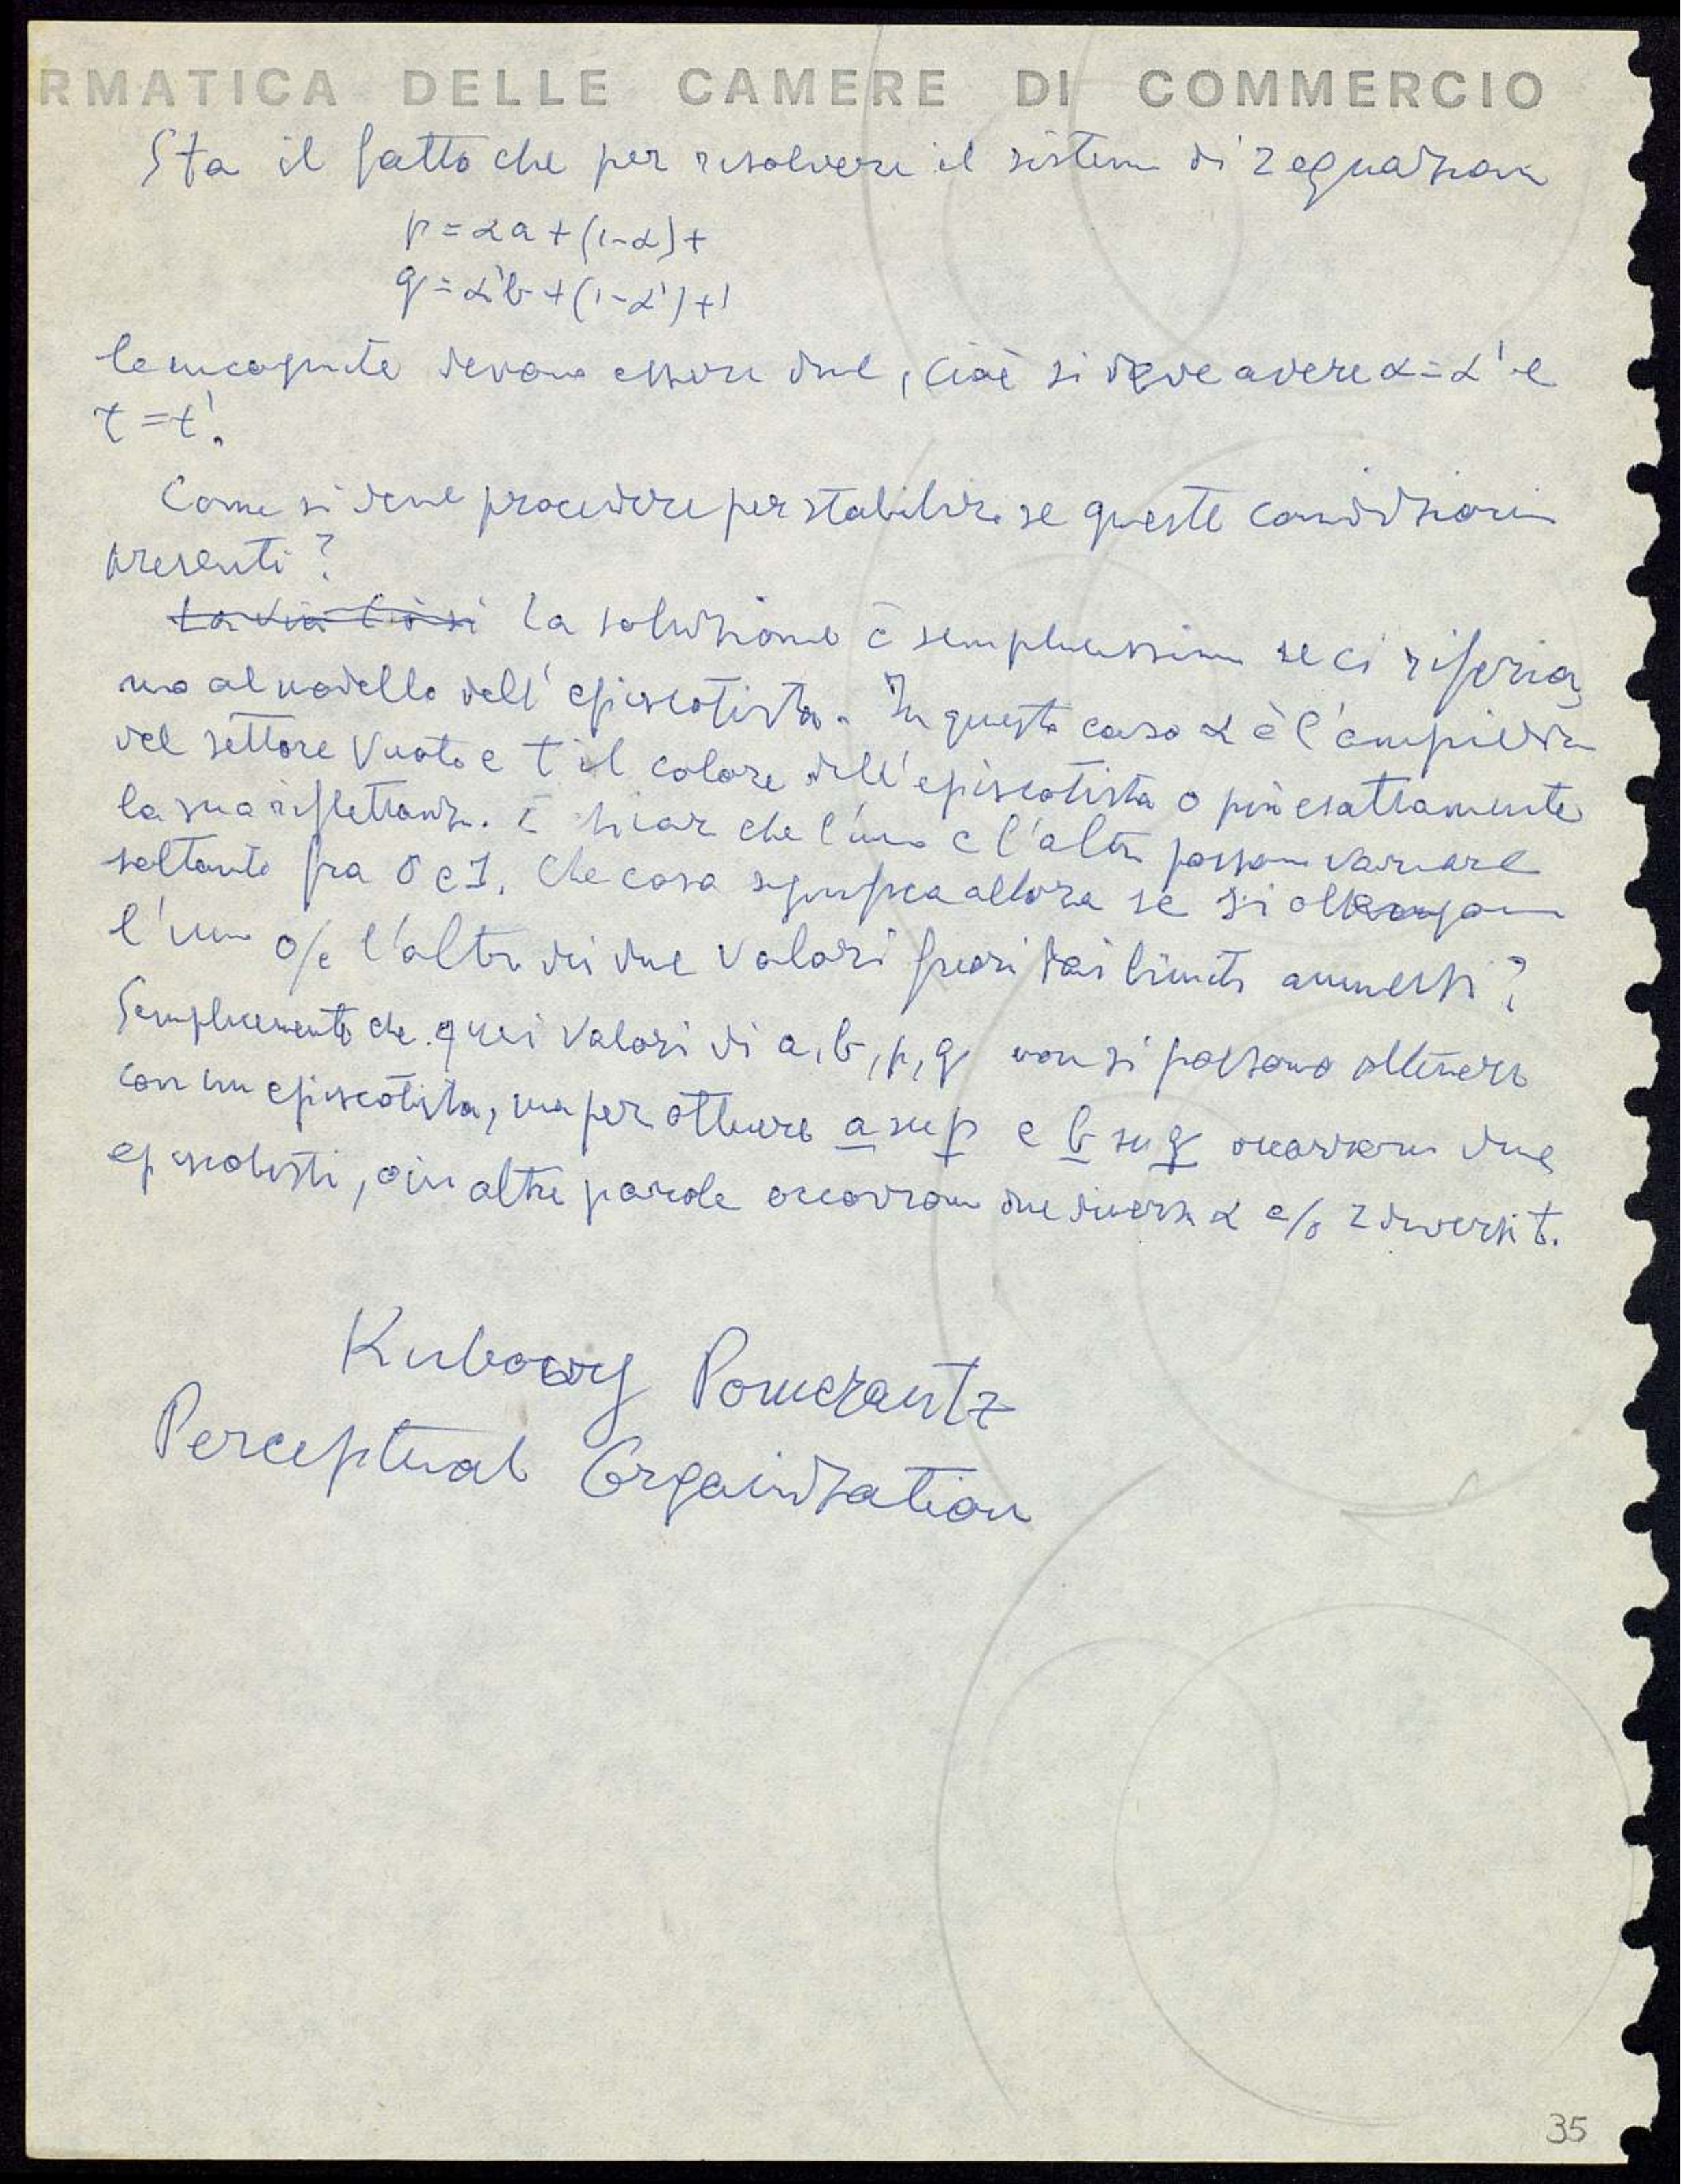 RMATICA DELLE CAMERE DI COMMERCIO
Sta il fatto che per risolvere il sistema di 2 equazioni
p = αa + (1-α)t
q = α'b + (1-α')t'
le incognite devono essere due, cioè si deve avere α = α' e
t = t'.
Come si deve procedere per stabilire se queste condizioni
presenti?
La via Ciò si La soluzione è semplicissima se ci riferia
mo al modello dell'episcotista. In questo caso α è l'ampiezza
del settore vuoto e t il colore dell'episcotista o più esattamente
la sua riflettanza. È chiaro che l'uno e l'altro possono variare
soltanto fra 0 e 1. Che cosa significa allora se si ottengono
l'uno o/e l'altro dei due valori fuori dai limiti ammessi?
Semplicemente che quei valori di a, b, p, q non si possono ottenere
con un episcotista, ma per ottenere a su p e b su q occorrono due
episcotisti, o in altre parole occorrono due diversi α e/o 2 diversi t.
Kubowy Pomerantz
Perceptual Organization
35